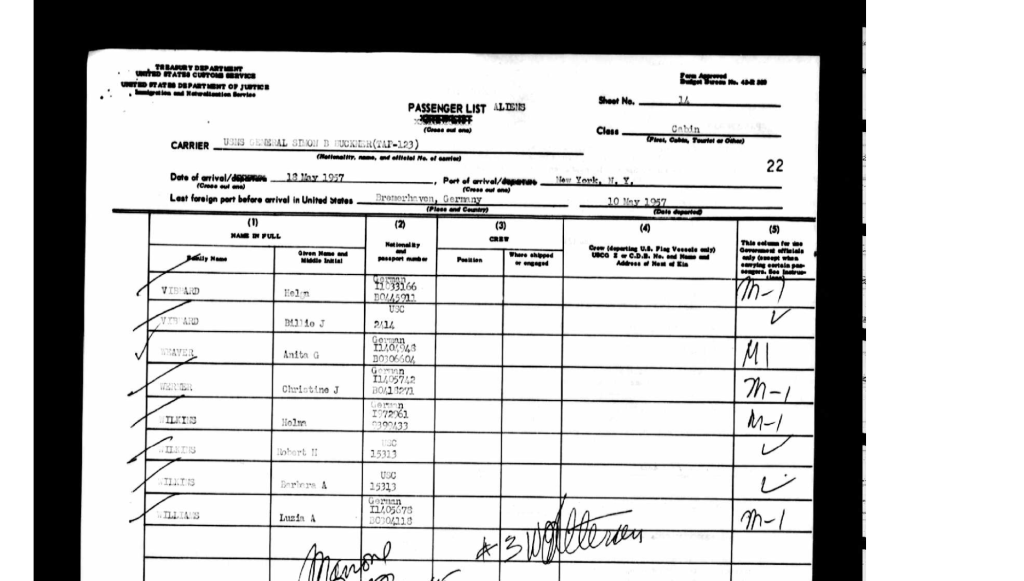 TREASURY DEPARTMENT
UNITED STATES CUSTOMS SERVICE
UNITED STATES DEPARTMENT OF JUSTICE
Immigration and Naturalization Service
Form Approved
Budget Bureau No.
PASSENGER LIST ALIENS
(Cross out one)
Sheet No. 14
Class Cabin
(First, Cabin, Tourist or Other)
CARRIER USNS GENERAL SIMON B BUCKNER(TAP-123)
(Nationality, name, and official No. of carrier)
22
Date of arrival/departure 18 May 1957, Port of arrival/departure New York, N. Y.
(Cross out one) (Cross out one)
Last foreign port before arrival in United States Bremerhaven, Germany 10 May 1957
(Place and Country) (Date departed)
(1) (2) (3) (4) (5)
NAME IN FULL
Family Name
Given Name and Middle Initial
Nationality and passport number
CREW
Position
Where shipped or engaged
Crew (departing U.S. Flag Vessels only) USCG Z or C.D.B. No. and Name and Address of Next of Kin
This column for use Government officials only (except when carrying certain passengers. See
German
Helen I1033166 M-1
B0445911
USC
Billie J 2414
German
WEAVER Anita G M1
B0106604
German
Christine J I1405742 M-1
German
WILKINS Helma I972961 M-1
USC
WILKINS Robert H 15313
USC
WILKINS Barbara A 15313
German
WILLIAMS Luzia A I1405678 M-1
B0304118
#3